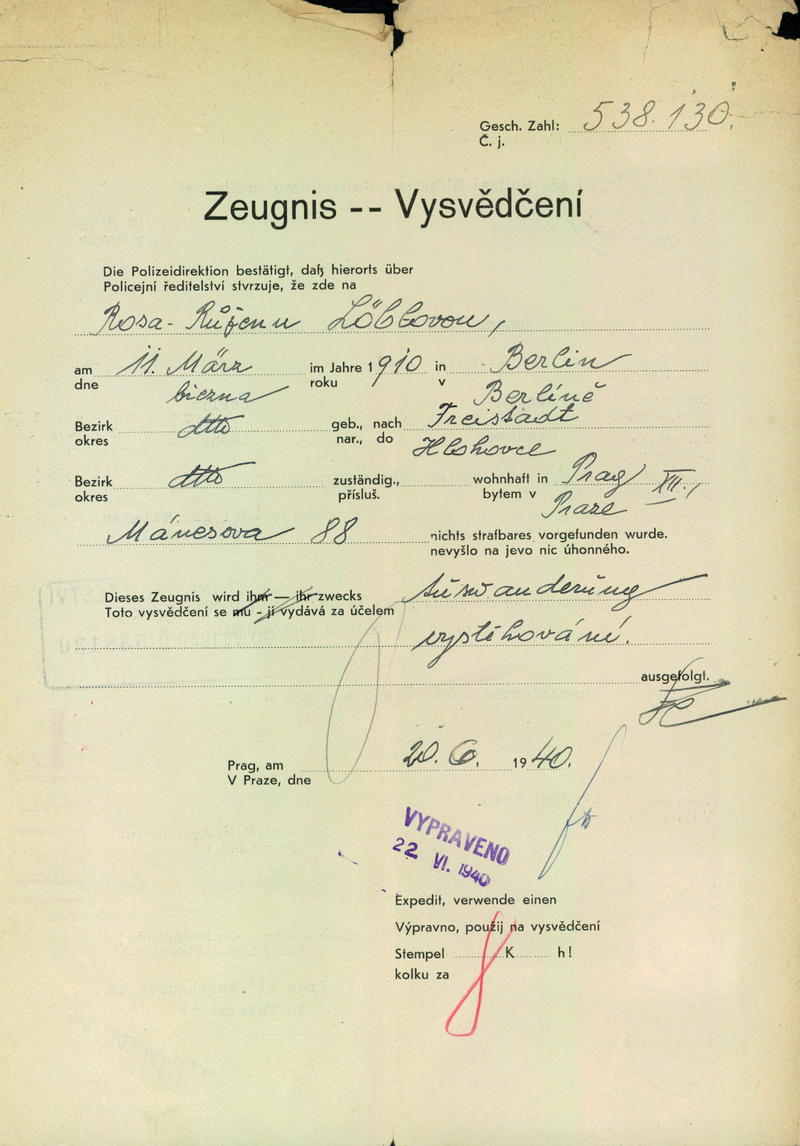 Gesch. Zahl: 538.130.
Č. j.
Zeugnis -- Vysvědčení
Die Polizeidirektion bestätigt, daß hierorts über
Policejní ředitelství stvrzuje, že zde na
Rosa - Růženu Löblovou,
am 11. März im Jahre 1910 in Berlin
dne března roku v Berlíně
Bezirk dtto geb., nach Freistadt
okres nar., do Hlohovce
Bezirk dtto zuständig., wohnhaft in Prag XII.,
okres přísluš. bytem v Praze
Mánesova 88 nichts strafbares vorgefunden wurde.
nevyšlo na jevo nic úhonného.
Dieses Zeugnis wird ihm — ihr zwecks Auswanderung
Toto vysvědčení se mu - jí vydává za účelem
vystěhování.
ausgefolgt.
Prag, am 20. 6. 1940.
V Praze, dne
VYPRAVENO
22. VI. 1940
Expedit, verwende einen
Výpravno, použij na vysvědčení
Stempel K h!
kolku za